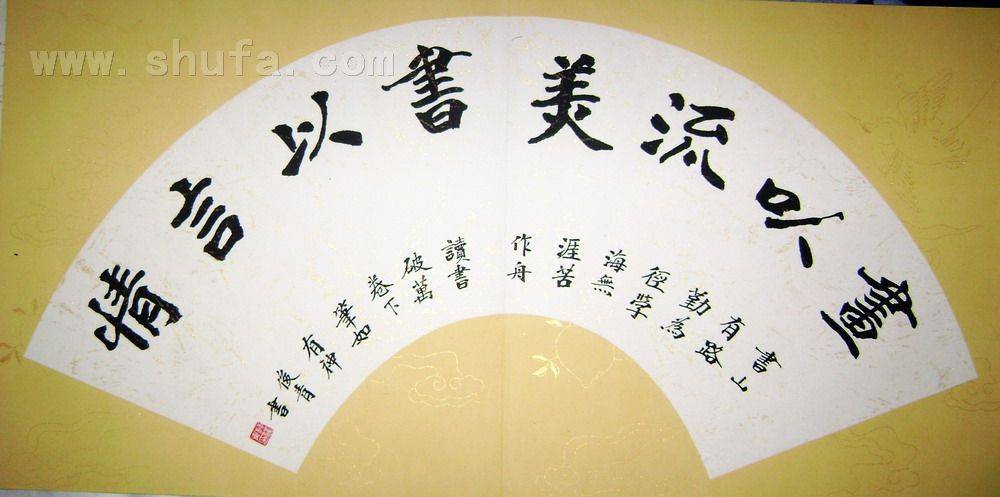 www.shufa.com
畫㕥流美書以言情
書山
有路
勤為
徑學
海無
涯苦
作舟
讀書
破萬
卷下
筆如
有神
青
書